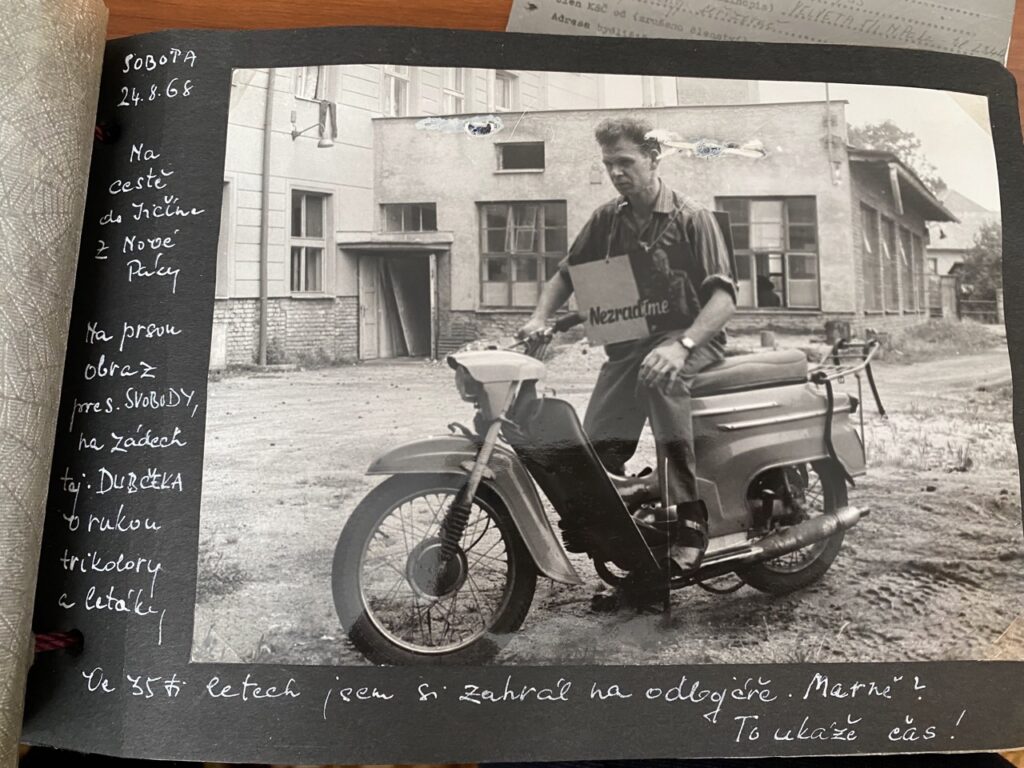 člen KSČ od (zrušeno členství)
Adresa bydliště
SOBOTA
24.8.68
Na
cestě
do Jičína
z Nové
Paky
Na prsou
obraz
pres. SVOBODY,
na zádech
taj. DUBČEKA
v rukou
trikolory
a letáky,
Nezradíme
Ve 35ti letech jsem si zahrál na odbojáře. Marně?
To ukáže čas!